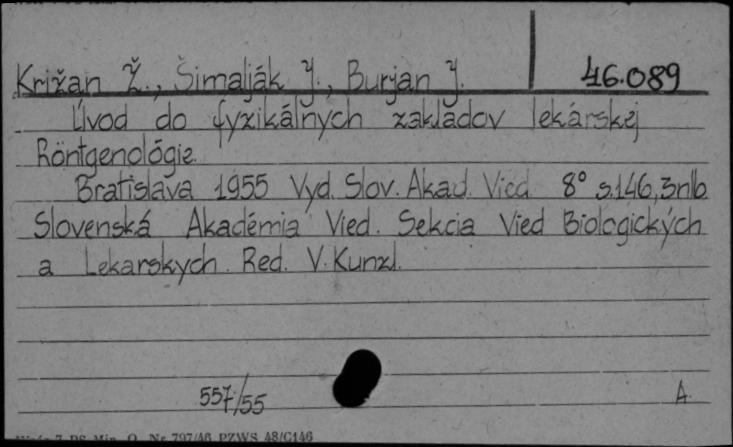 Križan Ž., Šimalják J., Burjan J. 46.089
Úvod do fyzikálnych zakladov lekárskej
Röntgenológie.
Bratislava 1955 Vyd. Slov. Akad. Vied 8° s.146,3nlb.
Slovenská Akadémia Vied. Sekcia Vied Biologických
a Lekarskych. Red. V. Kunzl.
557/55 A.
Nr 797/46 PZWS 48/G146